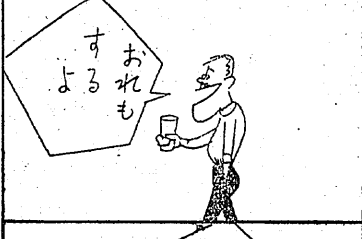 おれも
する
よ